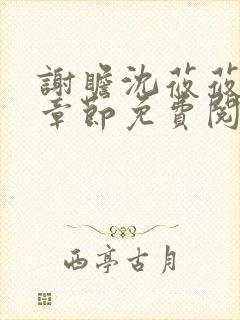 謝瞻沈莜莜
章節免費閱
西亭古月